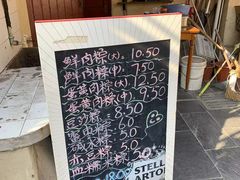 鲜肉粽(大). 10.50
鲜肉粽(中). 7.50
蛋黄肉粽(大) 12.50
蛋黄肉粽(中) 9.50
豆沙粽. 8.50
蜜枣粽. 8.50
碱水粽. 5.0
赤豆粽. 5.0
血糯米粽 20
18.00
STELL
ARTOI